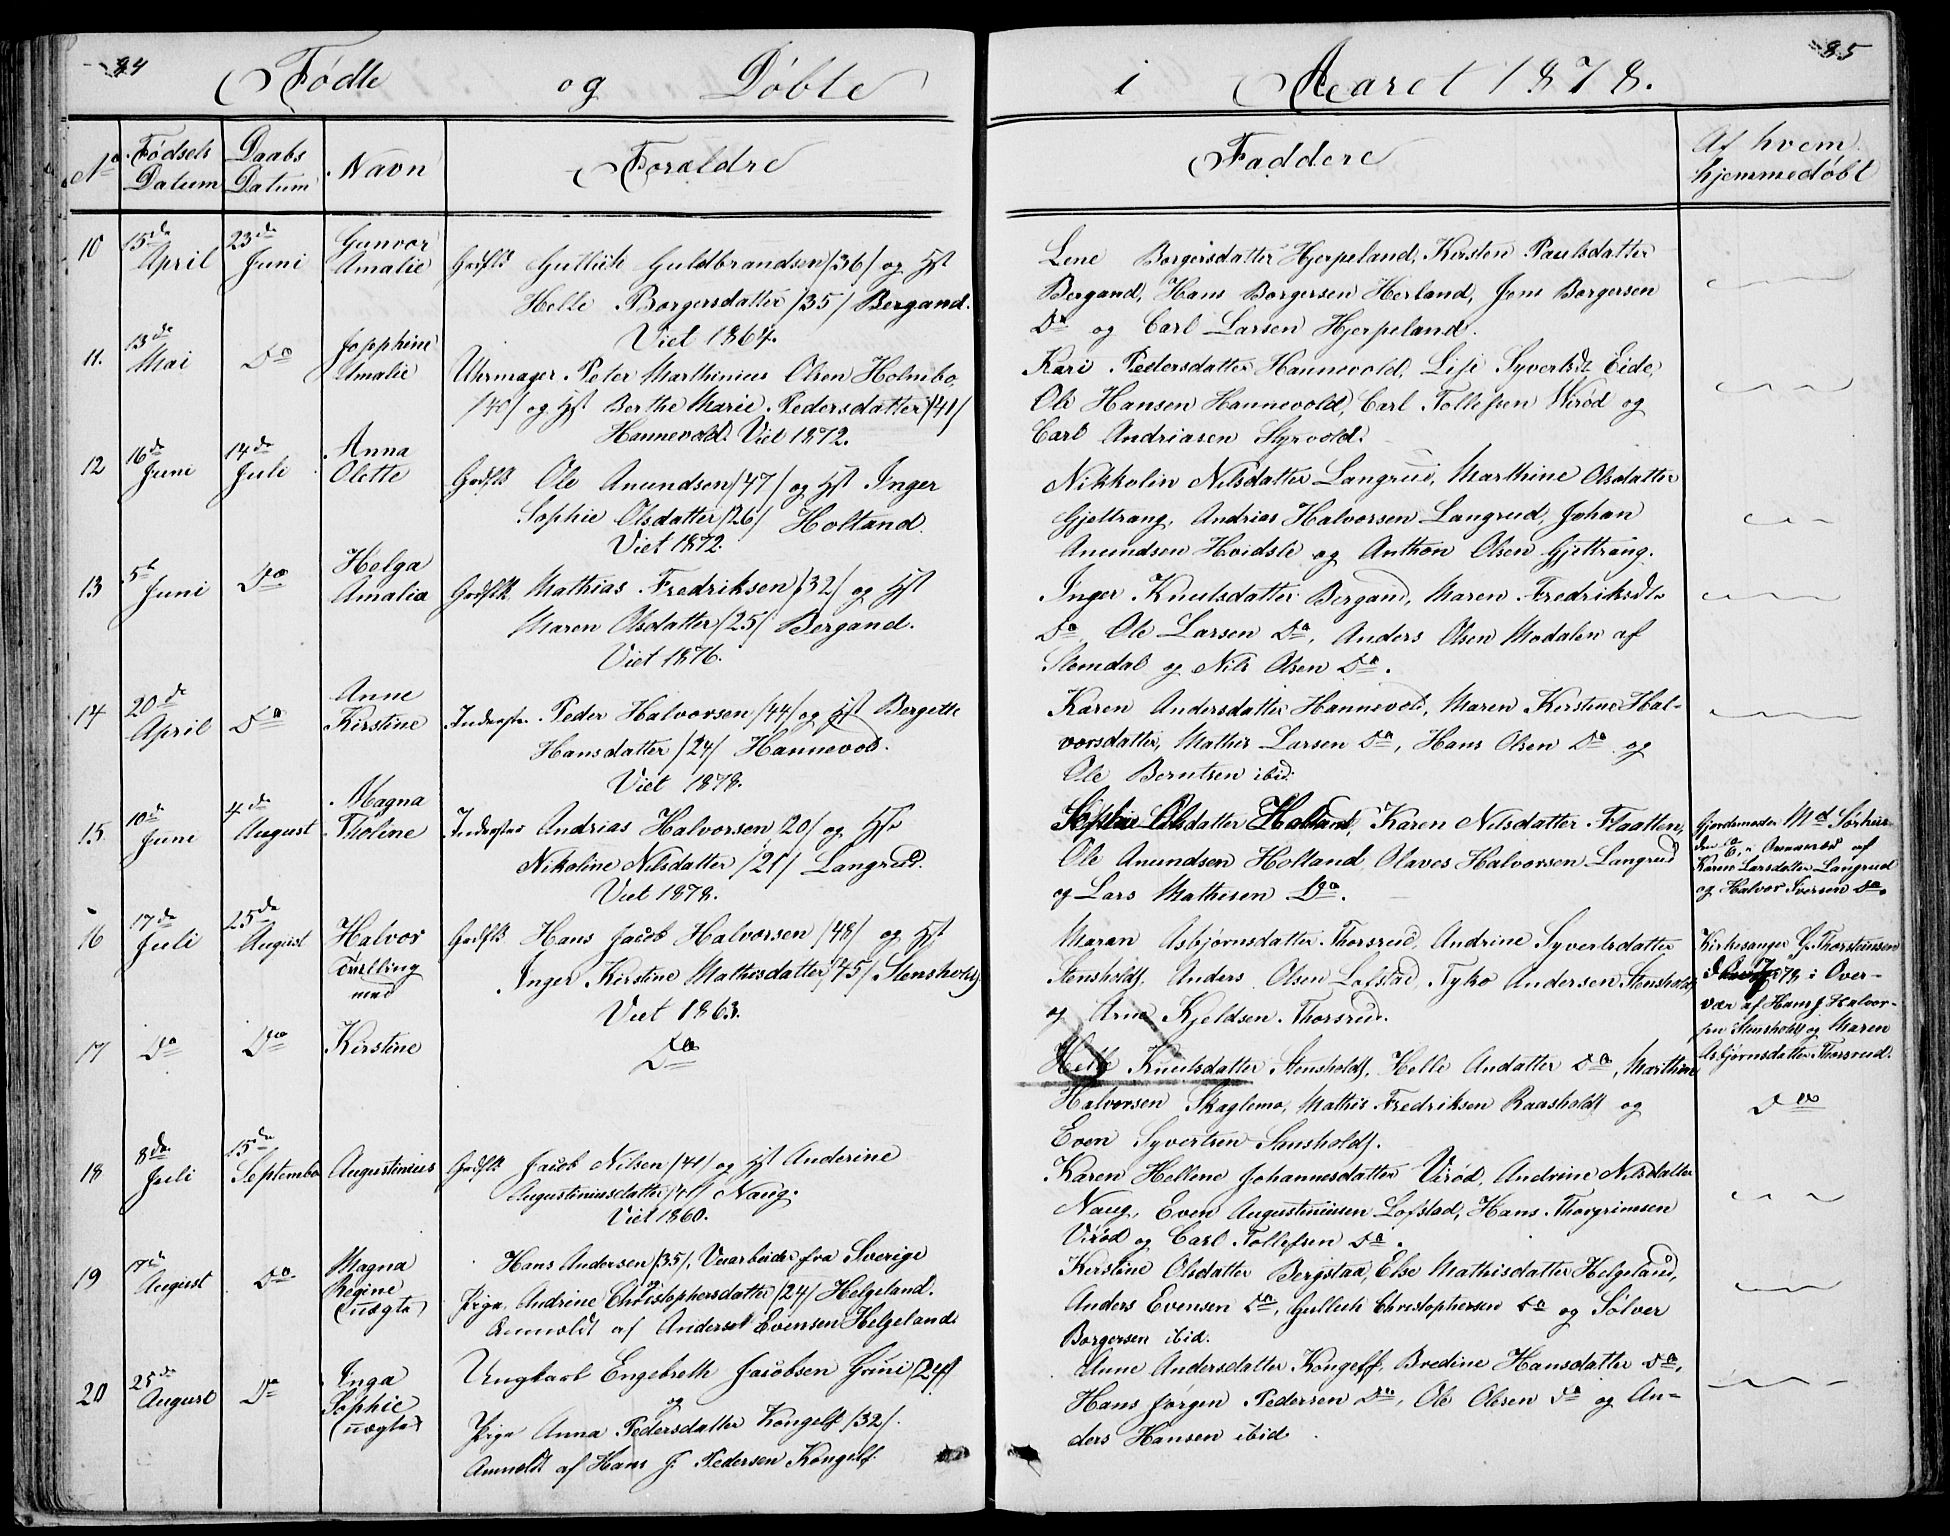 84
Fødte og Døbte
No. Fødsels Datum Daabs Datum Navn Forældre
10 15de April 23de Juni Gunvor Amalie Gaardbr. Gullich Guldbrandsen /36/ og Hst
Helle Borgersdatter /35/ Bergand.
Viet 1864.
11. 13de Mai Do Josephine Amalie Uhrmager Peter Marthinius Olsen Holmbo
/40/ og Hst Berthe Marie Pedersdatter /41/
Hannevold. Viet 1872.
12 16de Juni 14de Juli Anna Olette Gaardbr. Ole Anundsen /47/ og Hst Inger
Sophie Olsdatter /26/ Holtand.
Viet 1872.
13 5te Juni Do Helga Amalia Mathias Fredriksen /32/ og Hst
Maren Olsdatter /25/ Bergand.
Viet 1876.
14 20de April Do Anne Kirstine Inderster Peder Halvorsen /44/ og Hst Bergette
Hansdatter /24/ Hannevold.
Viet 1878.
15 10de Juni 4de August Magna Tholine Inderster Andrias Halvorsen 20/ og Hst
Nikoline Nilsdatter /21/ Langrud.
Viet 1878.
16 17de Juli 25de August Halvor Tvilling med Hans Jacob Halvorsen /48/ og Hst
Inger Kirstine Mathisdatter /45/ Stensholdt
Viet 1863.
17 Do Do Kirstine Do
18 8de Juli 15de September Augustinius Jacob Nilsen /41/ og Hst Anderine
Augustiniusdatter /41/ Naug.
Viet 1860.
19 August Do Magna Regine (uægte) Hans Andersen /35/, Veiarbeider fra Sverige
Pige Andrine Christophersdatter /24/ Helgeland.
Anmeldt af Anders Evensen Helgeland
20 25de August Do Inga Sophie (uægte) Ungkarl Engebreth Jacobsen Grini /24/
og
Pige Anna Pedersdatter Kongelf /32/.
Anmeldt af Hans J. Pedersen Kongelf.
85
i Aaret 1878.
Faddere Af hvem hjemmedøbt
Lene Borgersdatter Hjerpeland, Kirsten Paulsdatter
Bergand, Hans Borgersen Herland, Jens Borgersen
Do og Carl Larsen Hjerpeland.
Kari Pedersdatter Hannevold, Lise Syvertsdt Eide,
Ole Hansen Hannevold, Carl Tollefsen Wirød og
Carl Andriasen Styrvold.
Nikkolin Nilsdatter Langrud, Marthine Olsdatter
Gjeltrang, Andrias Halvorsen Langrud, Johan
Anundsen Hvidste og Anthon Olsen Gjeltrang.
Inger Knutsdatter Bergand, Maren Fredriksdtr
Do, Ole Larsen Do, Anders Olsen Modalen af
Slemdal og Nils Olsen Do.
Karen Andersdatter Hannevold, Maren Kirstine Hal-
vorsdatter, Mathis Larsen Do, Hans Olsen Do og
Ole Berntsen ibid.
Sophie Olsdatter Holtand, Karen Nilsdatter Flaatten,
Ole Anundsen Holtand, Olaves Halvorsen Langrud
og Lars Mathisen Do.
Gjordemoder Md
Karen Larsdatter Langrud
og Halvor Iversen Do.
Maran Asbjørnsdatter Thorsrud, Andrine Syvertsdatter
Stensholdt, Anders Olsen Lofstad, Tyko Andersen Stensholdt
og Arne Kjeldsen Thorsrud.
Kirkesanger G. Thorstensen
78 i Over-
vær af Hans J. Halvor-
sen Stensholdt og Maren
Asbjørnsdatter Thorsrud.
Helle Knutsdatter Stensholdt, Helle Andatter Do, Marthin
Halvorsen Skaglemo, Mathis Fredriksen Raasholdt og
Even Syvertsen Stensholdt.
Do
Karen Hellene Johannesdatter Virød, Andrine Nilsdatter
Naug, Even Augustiniusen Lofstad, Hans Thorgrimsen
Virød og Carl Tollefsen Do.
Kirstine Olsdatter Bergstaa, Else Mathisdatter Helgeland,
Anders Evensen Do, Gullich Christophersen Do og Sølver
Borgersen ibid.
Anne Andersdatter Kongelf, Bredine Hansdatter Do,
Hans Jørgen Pedersen Do, Ole Olesen Do og An-
ders Hansen ibid